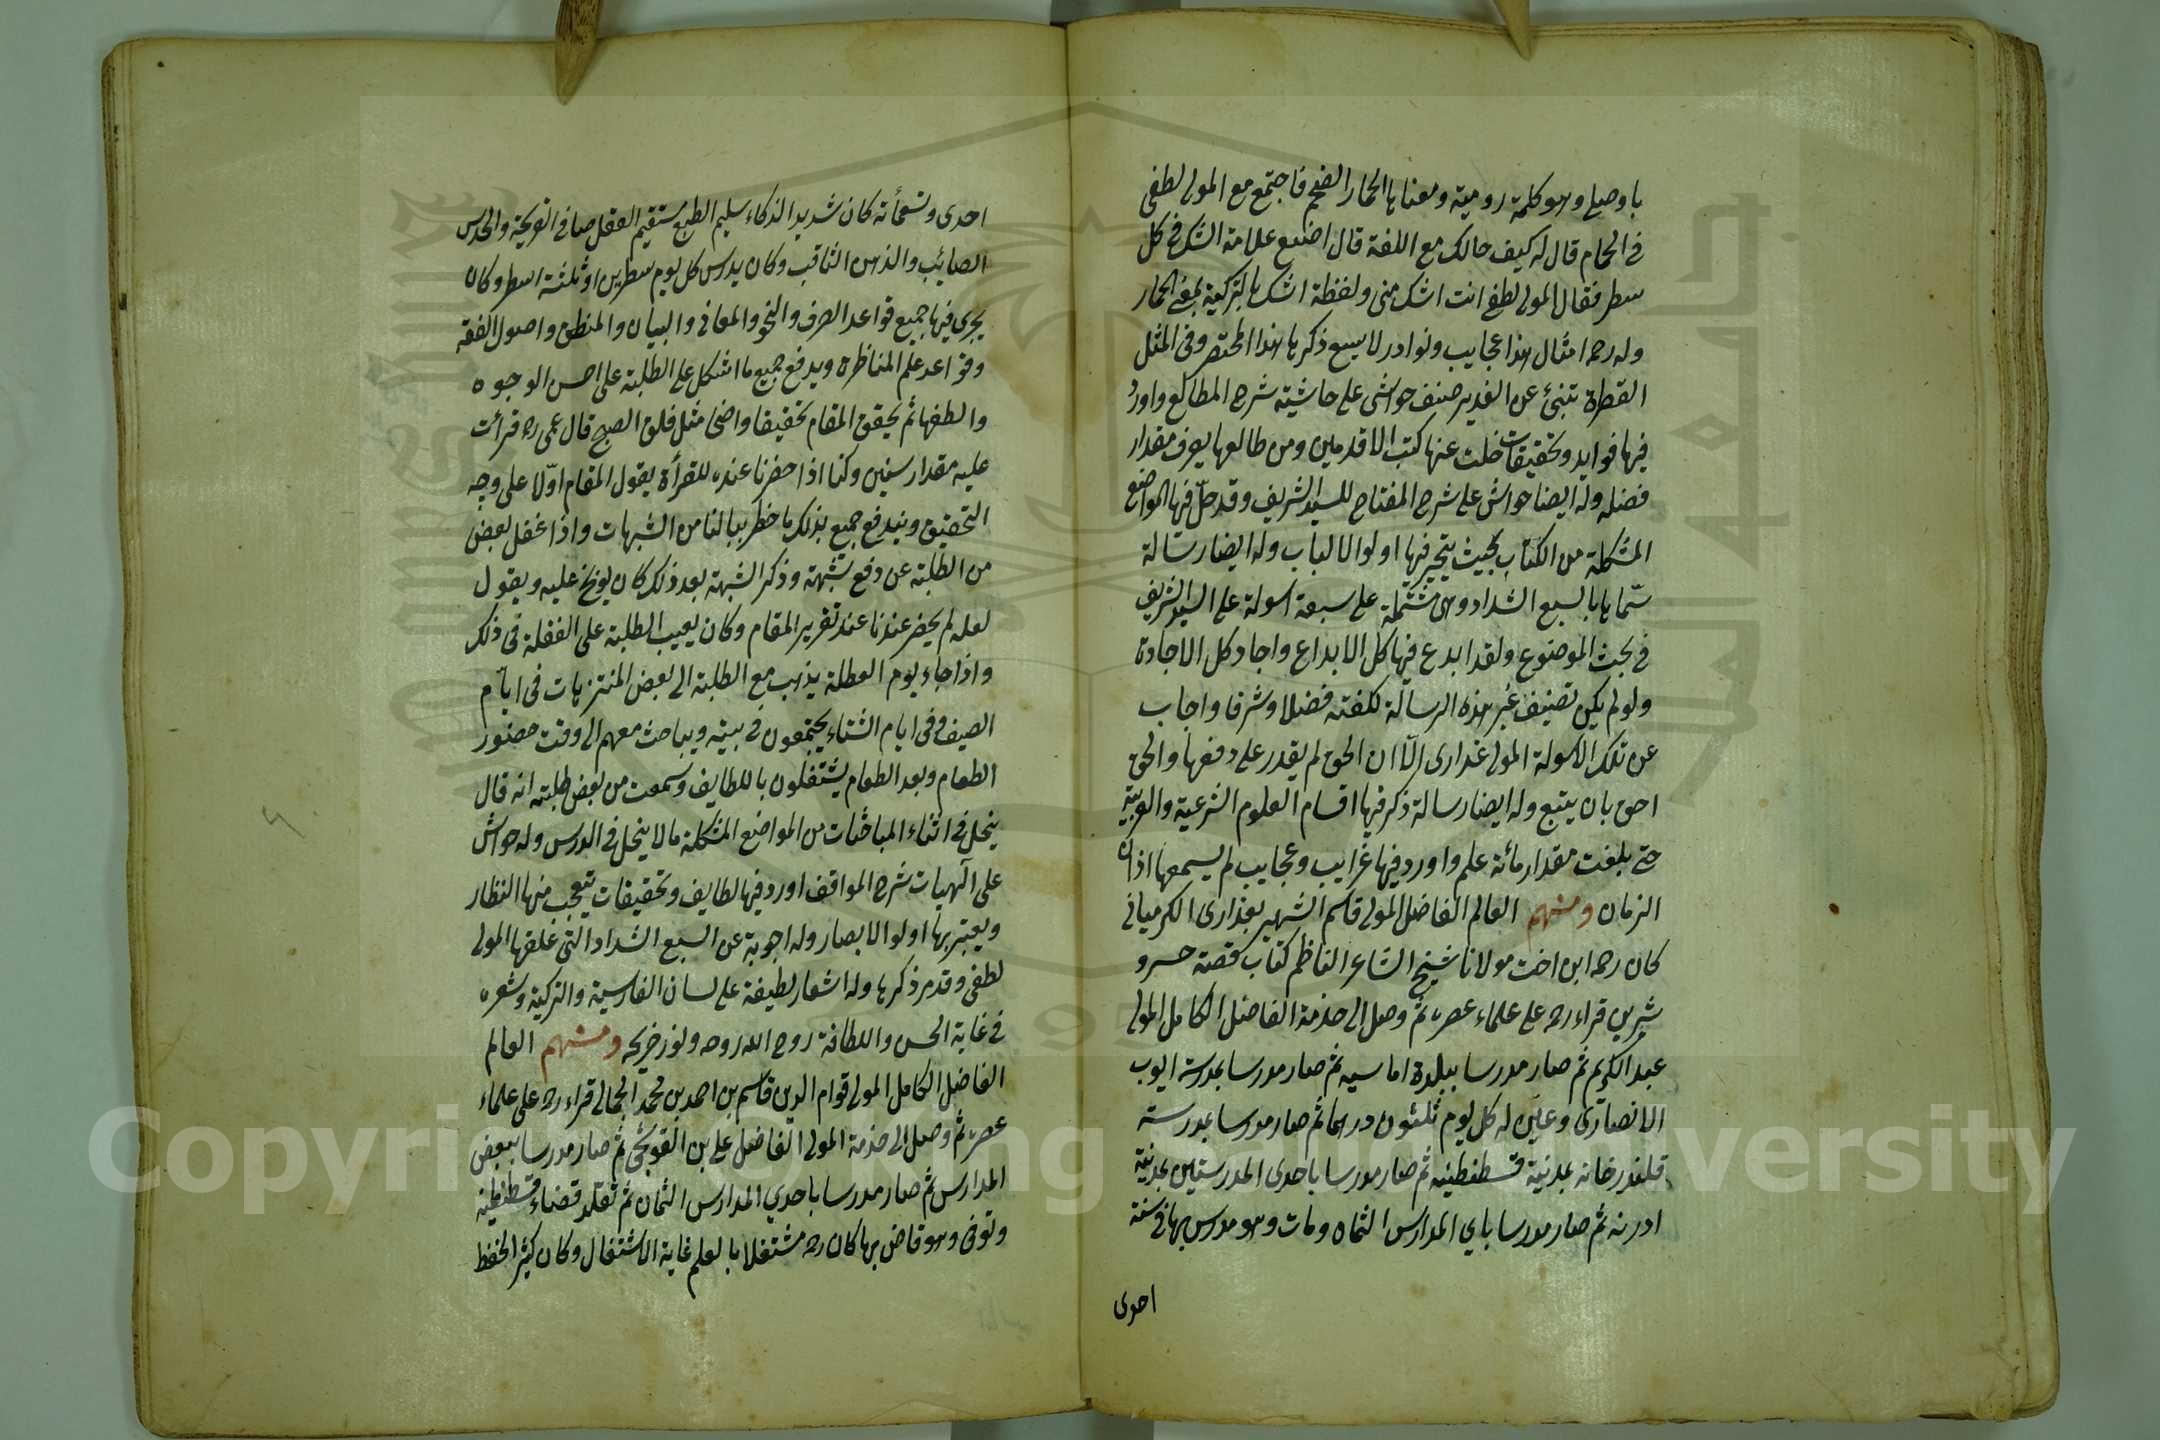 باوصلي وهو كلمة رومية ومعناها الحمار الضخم فاجتمع مع المولى لطفى
فى الحمام قال له كيف حالك مع اللغة قال اضع علامة الشك فى كل
سطر فقال المولى لطفى انت اشك منى ولفظة اشك بالتركية بمعنى الحمار
وله رحه امثال هذا عجايب ونوادر لا يسع ذكرها هذا المختصر وفى المثل
القطرة تنبئ عن الغدير صنف حواشى على حاشيته شرح المطالع واورد
فيها فوايد وتحقيقات خلت عنها كتب الاقدمين ومن طالعها يعرف مقدار
فضله وله ايضا حواش على شرح المفتاح للسيد الشريف وقد حل فيها المواضع
المشكلة من الكتاب بحيث يتحير فيها اولوا الالباب وله ايضا رسالة
سماها بالسبع الشداد وهى مشتملة على سبعة اسولة على السيد الشريف
فى بحث الموضوع ولقد ابدع فيها كل الابداع واجاد كل الاجادة
ولو لم يكن تصنيف غير هذه الرسالة لكفته فضلا وشرفا واجاب
عن تلك الاسولة المولى عذارى الا ان الحق لم يقدر على دفعها والحق
احق بان يتبع وله ايضا رسالة ذكر فيها اقسام العلوم الشرعية والعربية
حتى بلغت مقدار مائة علم واورد فيها غرايب وعجايب لم يسمعها اذان
الزمان ومنهم العالم الفاضل المولى قاسم الشهير بعذارى الكرميانى
كان رحه ابن اخت مولانا شيخى الشاعر الناظم كتاب قصة خسرو
شيرين قراء رحه على علماء عصره ثم وصل الى خدمة الفاضل الكامل المولى
عبد الكريم ثم صار مدرسا ببلدة اماسيه ثم صار مدرسا بمدرسة ايوب
الانصارى وعين له كل يوم ثلثون درهما ثم صار مدرسا بمدرسة
قلندرخانه بمدينة قسطنطينه ثم صار مدرسا باحدى المدرستين بمدينة
ادرنه ثم صار مدرسا باحدي المدارس الثمان ومات وهو مدرس بها فى سنة
احدى
احدى وتسعمأئة كان شديد الذكاء سليم الطبع مستقيم العقل صافى القريحة والحدس
الصائب والذهن الثاقب وكان يدرس كل يوم سطرين او ثلثة اسطر وكان
يجرى فيها جميع قواعد الصرف والنحو والمعانى والبيان والمنطق واصول الفقه
وقواعد علم المناظره ويدفع جميع ما اشكل على الطلبة على احسن الوجوه
والطفها ثم يحقق المقام تحقيقا واضحا مثل فلق الصبح قال عمى رحه قرائت
عليه مقدار سنين وكنا اذا حضرنا عنده للقرأة يقول المقام اولا على وجه
التحقيق ويندفع جميع بذلك ما خطر ببالنا من الشبهات واذا غفل بعض
من الطلبة عن دفع شبهة وذكر الشبهة بعد ذلك كان يوبخ عليه ويقول
لعله لم يحضر عندنا عند تقرير المقام وكان يعيب الطلبة على الغفلة فى ذلك
واذا جاء يوم العطلة يذهب مع الطلبة الى بعض المنتزهات فى ايام
الصيف وفى ايام الشتاء يجتمعون فى بيته ويباحث معهم الى وقت حضور
الطعام وبعد الطعام يشتغلون باللطايف وسمعت من بعض طلبته انه قال
ينحل فى اثناء المباحثات من المواضع المشكلة ما لا ينحل فى الدرس وله حواش
على الهيات شرح المواقف اورد فيها لطايف وتحقيقات يتعجب منها النظار
ويعتبر بها اولوا الابصار وله اجوبة عن السبع الشداد التى علقها المولى
لطفى وقد مر ذكرها وله اشعار لطيفة على لسان الفارسية والتركية وشعره
فى غاية الحسن واللطافة روح الله روحه ونور ضريحه ومنهم العالم
الفاضل الكامل المولى قوام الدين قاسم بن احمد بن محمد الجمالى قراء رحه على علماء
عصره ثم وصل الى خدمة المولى الفاضل على بن القوشجى ثم صار مدرسا ببعض
المدارس ثم صار مدرسا باحدي المدارس الثمان ثم تقلد قضاء قسطنطينه
وتوفى وهو قاض بها كان رحه مشتغلا بالعلم غاية الاشتغال وكان كثير الحفظ
Copyright © King Saud University